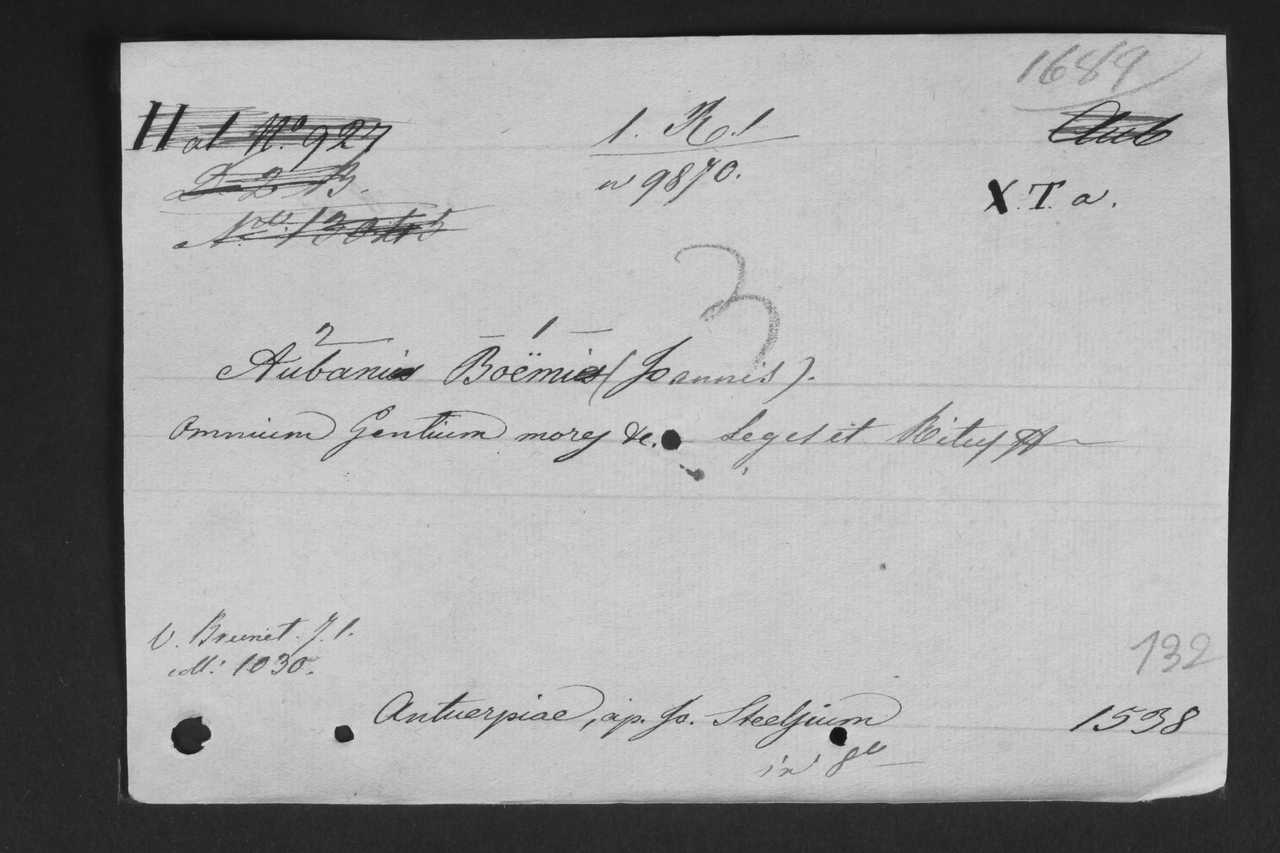 1689
H al Nº. 927
1. R. 1
Aub
n 9870.
X. T. a.
3
2 1
Aubanis Boëmis (Joannis).
Omnium Gentium mores &c. Leges et Ritus
V. Brunet. T. 1.
coll: 1030.
132
Antuerpiae, ap. Jo. Steelsium
1538
in 8º